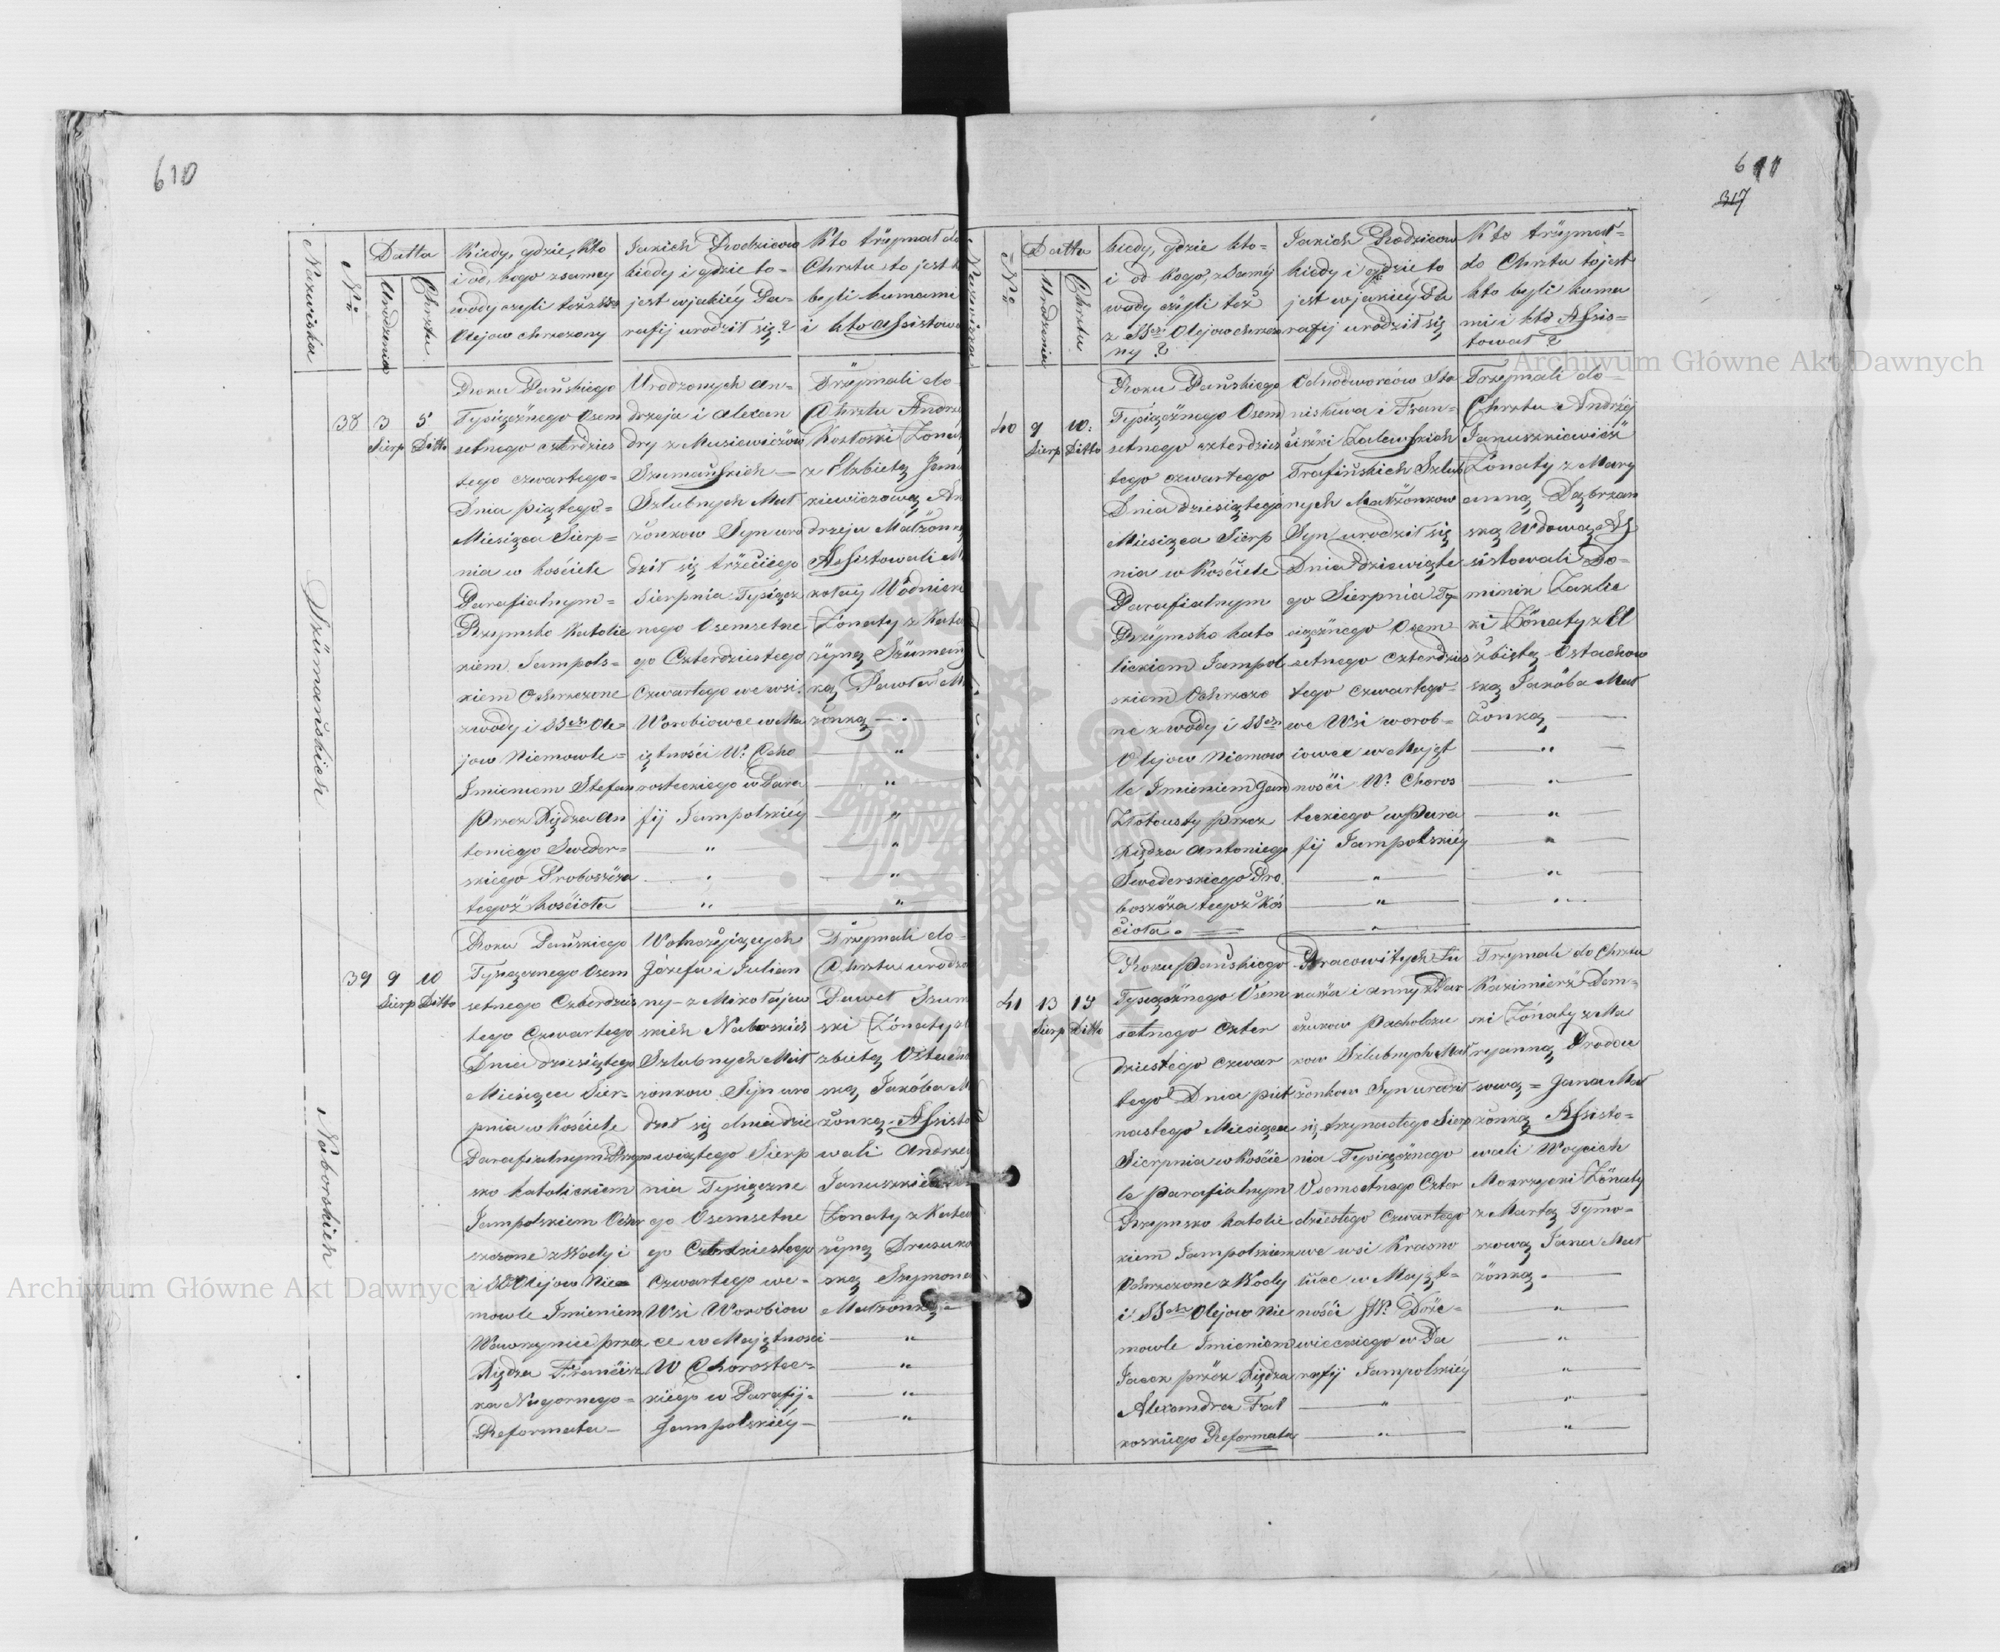 610
Nazwiska
No
Datta
Urodzenia
Chrztu
Kiedy, gdzie, kto
i od kogo z samey
wody czyli też z SSch
Olejow chrzczony
Jakich Rodzicow
kiedy i gdzie to-
jest w jakiéy Pa-
rafij urodził się?
Kto trzÿmał do
Chrztu to jest k
byli kumami
i kto assistowa
Szumańskich
38
3
Sierp
5
Ditto
Roku Pańskiego
Tysiącznego Osem
setnego czterdzies
tego czwartego=
Dnia piątego=
Miesiąca Sierp=
nia w kościele
Parafialnym=
Rzymsko Katolic
kiem Jampols=
kiem Ochrzczone
z wody i SSch Ole=
jow Niemowle=
Imieniem Stefan
przez Xiędza An
toniego Sweder=
skiego Proboszcza
tegoż kościoła
Urodzonych An=
drzeja i Alexan
dry z Musiewiczów
Szumańskich
Szlubnych Mał
żonkow Syn uro
dził się trzéciego
Sierpnia Tysiącz
nego Osemsetne
go Czterdziestego
Czwartego we wsi
Worobiowce w Ma
iątności W: Cho
rosteckiego w Para
fij Jampolskiéy
Trzÿmali do
Chrztu Andrz
Kozłoski Żonat
z Elzbietą Jan
kiewiczową An
drzeju Małżonk
Assistowali M
kołaÿ Wodnick
Żonaty z Kata
rzyną Szumańs
ką Pawła M
żonką
Naborskich
39
9
Sierp
10
Ditto
Roku Pańskiego
Tysiącznego Osem
setnego Czterdzies
tego Czwartego
Dnia dziesiątego
Miesiąca Sier=
pnia w Kościele
Parafialnym Rzym
sko katolickiem
Jampolskiem Ochr
zczone z Wody i
i SS Olejow Nie=
mowle Imieniem
Wawrzyniec prze
Xiędza Frańcisz
ka Nagornego=
Reformata-
Wolnożÿiących
Józefa i Julian
ny- z Mikołajew
skich Naborskich
Szlubnych Mał
żonkow Syn uro
dził się dnia dzie
wiątego Sierp
nia Tysiączne
go Osemsetne
go Czterdziestego
Czwartego we-
Wsi Worobiow
ce w Majątności
W Chorostec=
kiego w Parafij=
Jampolskiéy-
Trzÿmali do
Chrztu urodzo
Paweł Szum
ski Żonaty z
zbietą Ostacho
ską Jakóba M
żonką- Assisto
wali Andrzej
Januszkie
Żonaty z Kata
rzyną Drusuko
ską Szymona
Małżonką=
611
317
Nazwiska
No
Datta
Urodzenia
Chrztu
kiedy, gdzie kto=
i od kogo, z Saméj
wody czÿli też
z SSch Olejow chrzczo
ny?
Jakich Rodzicow
kiedy i gdzie to
jest w jakiéy Pa
rafij urodził się
Kto trzÿmał=
do Chrztu to jest
kto byli kuma
mi i kto Assis=
tował?
40
9
Sierp
10:
Ditto
Roku Pańskiego
Tysiącżnego Osem
setnego czterdzies
tego czwartego
Dnia dziesiątego
Miesiąca Sierp
nia w Kościele
Parafialnym
Rzÿmsko kato
lickiem Jampol
skiem Ochrzczo
ne z wody i SSch
Olejow Niemow
le Imieniem Jan
Złotousty przez
Xiędza Antoniego
Swederskiego Pro
boszcza tegoż Kós
cioła.
Odnodworców Sta
nisława i Fran-
ciszki Zalewskich
Trafińskich Szlub
nych Małżonkow
Syn urodził się
Dnia dziewiąte
go Sierpnia Ty
siącżnego Osem
setnego czterdzies
tego czwartego-
we Wsi worob=
iowce w Mająt
ności W: Choros
teckiego w Para
fij Jampolskiéy
Trzymali do-
Chrztu Andrzéj
Januszkiewicz
Żonaty z Mary
anną Dąbrzań
ską Wdową As
sistowali Do-
minik Zaklic
ki Żonaty z El
żbietą Ostachow
ską Jakóba Mał
żonką
41
13
Sierp
15
Ditto
Roku Pańskiego
Tysiącżnego Osem
setnego Czter
dziestego czwar
tego Dnia piet
nastego Miesiąca
Sierpnia w Koście
le Parafialnym
Rzymsko katolic
kiem Jampolskiem
Ochrzczone z Wody
i SSch Olejow Nie
mowle Imieniem
Jacek przéz Xiędza
Alexandra Fal
koskiego Reformata
Pracowitych Łu
kasza i Anny z Dar
czukow Pacholczu
kow Szlubnych Mał
żonkow Syn urodził
się trzynastego Sierp
nia Tysiącżnego
Osemsetnego Czter
dziestego Czwartego
we wsi Krasno
łuce w Mająt-
ności JW: Dzie-
wieckiego w Pa
rafij Jampolskiéy
Trzymali do Chrztu
Kazimierz Dem=
ski Żónaty z Ma
ryanną Drodou
sową= Jana Mał
żonką Assisto=
wali Woyciech
Mokrzycki Żónaty
z Martą Tymo=
szową Jana Mał
żónką.
Archiwum Główne Akt Dawnych
Archiwum Główne Akt Dawnych